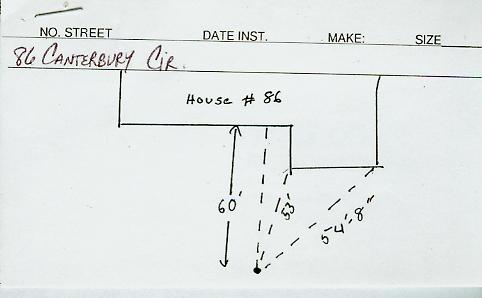 NO. STREET DATE INST. MAKE: SIZE
86 CANTERBURY CIR.
HOUSE # 86
60'
53'
54'-8"